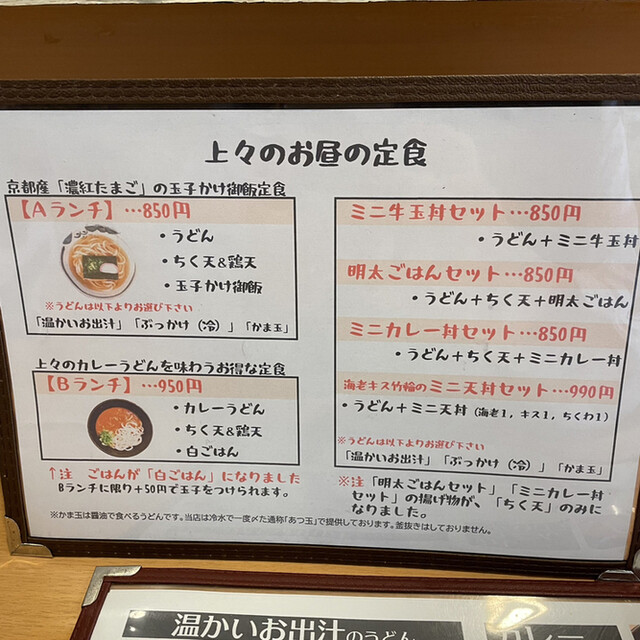 上々のお昼の定食
京都産「濃紅たまご」の玉子かけ御飯定食
【Aランチ】…850円
・うどん
・ちく天&鶏天
・玉子かけ御飯
※うどんは以下よりお選び下さい
「温かいお出汁」「ぶっかけ(冷)」「かま玉」
上々のカレーうどんを味わうお得な定食
【Bランチ】…950円
・カレーうどん
・ちく天&鶏天
・白ごはん
↑注 ごはんが「白ごはん」になりました
Bランチに限り+50円で玉子をつけられます。
ミニ牛玉丼セット…850円
・うどん+ミニ牛玉丼
明太ごはんセット…850円
・うどん+ちく天+明太ごはん
ミニカレー丼セット…850円
・うどん+ちく天+ミニカレー丼
海老キス竹輪のミニ天丼セット…990円
・うどん+ミニ天丼(海老1,キス1,ちくわ1)
※うどんは以下よりお選び下さい
「温かいお出汁」「ぶっかけ(冷)」「かま玉」
※注「明太ごはんセット」「ミニカレー丼
セット」の揚げ物が、「ちく天」のみに
なりました。
※かま玉は醤油で食べるうどんです。当店は冷水で一度〆た通称「あつ玉」で提供しております。釜抜きはしておりません。
温かいお出汁のうどん